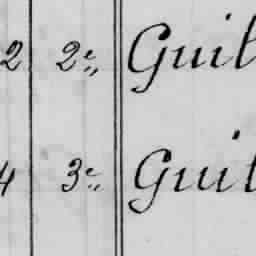 2 2e,, Guil
4 3e,, Guil